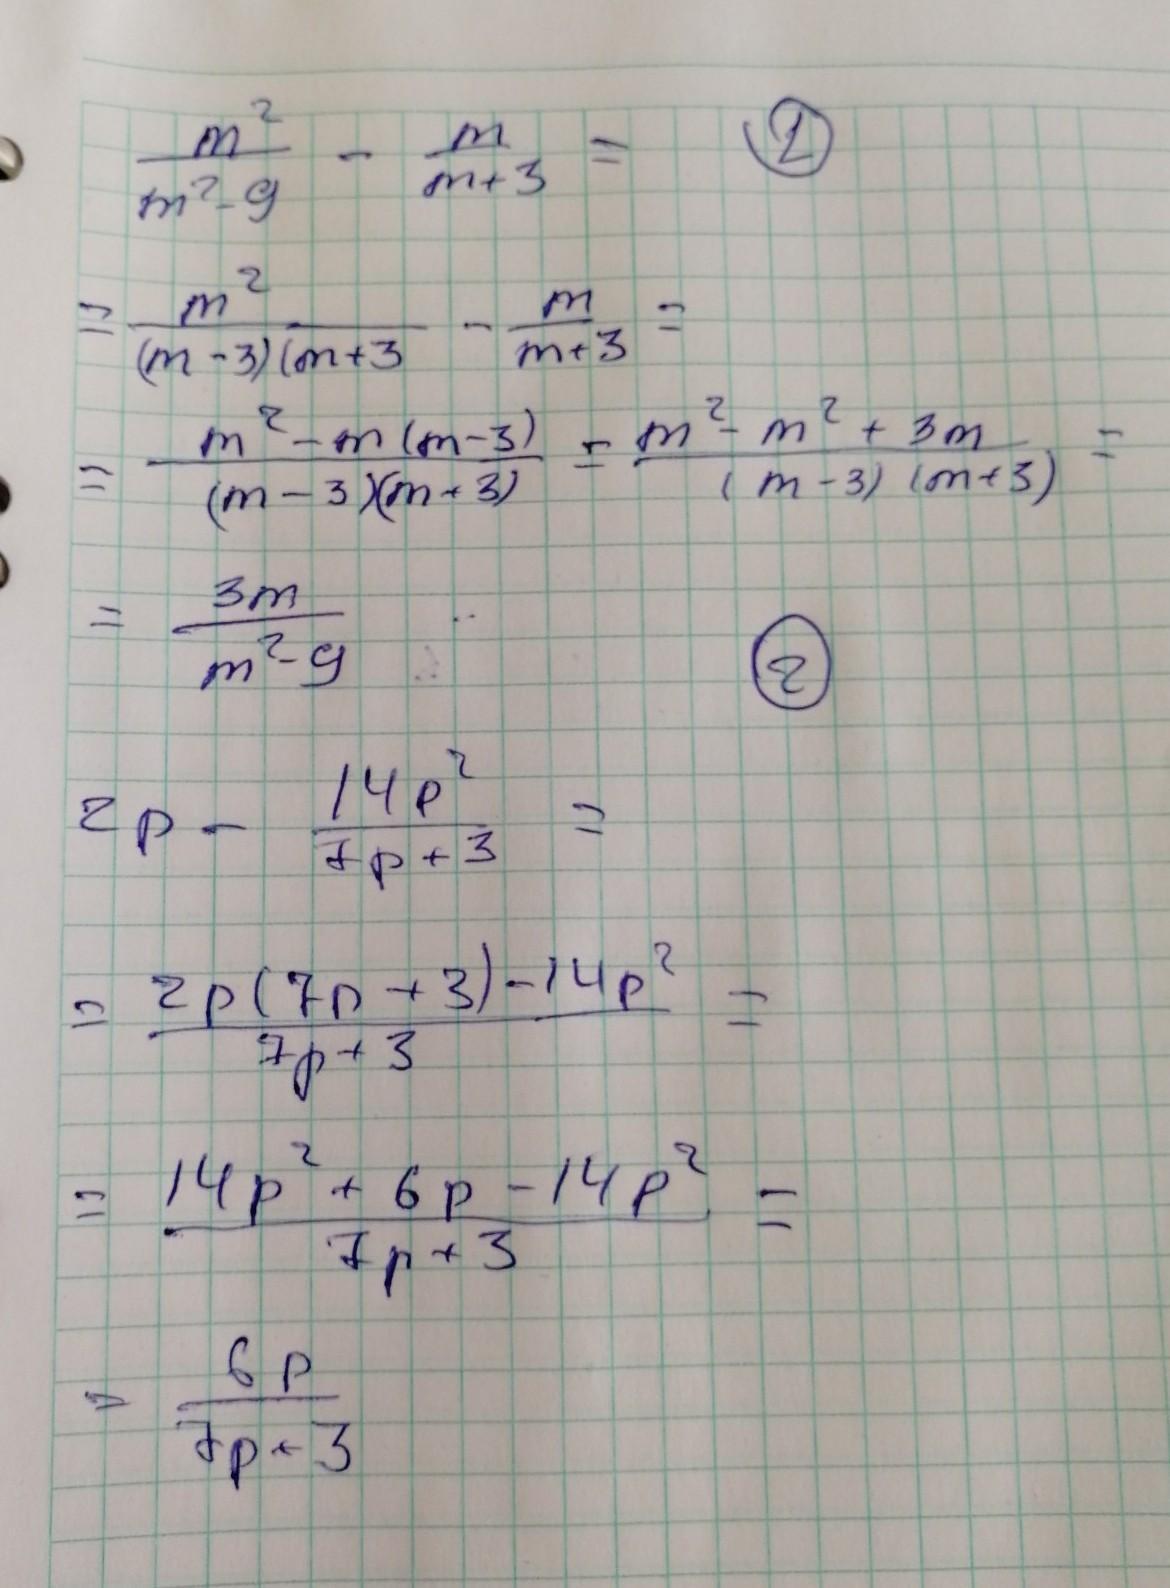 m²/(m²-9) - m/(m+3) = ①
= m²/((m-3)(m+3) - m/(m+3) =
= (m²-m(m-3))/((m-3)(m+3)) = (m²-m²+3m)/((m-3)(m+3)) =
= 3m/(m²-9)
②
2p - 14p²/(7p+3) =
= (2p(7p+3)-14p²)/(7p+3) =
= (14p²+6p-14p²)/(7p+3) =
= 6p/(7p+3)